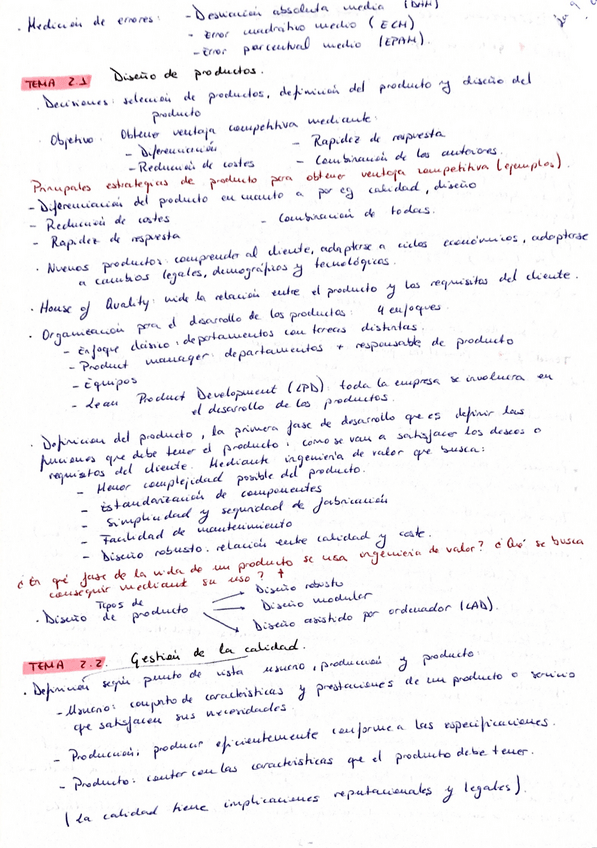 · Medición de errores: - Desviación absoluta media (DAM)
- Error cuadrático medio (ECM)
- Error porcentual medio (EPAM).
TEMA 2.1 Diseño de productos.
· Decisiones: selección de productos, definición del producto y diseño del
producto
· Objetivo: Obtener ventaja competitiva mediante:
- Diferenciación - Rapidez de respuesta
- Reducción de costes - Combinación de las anteriores.
Principales estrategias de producto para obtener ventaja competitiva (ejemplos).
- Diferenciación del producto en cuanto a por eg calidad, diseño
- Reducción de costes - Combinación de todas.
- Rapidez de respuesta
· Nuevos productos: comprender al cliente, adaptarse a ciclos económicos, adaptarse
a cambios legales, demográficos y tecnológicos.
· House of Quality: mide la relación entre el producto y los requisitos del cliente.
· Organización para el desarrollo de los productos: 4 enfoques.
- Enfoque clásico: departamentos con tareas distintas.
- Product manager: departamentos + responsable de producto
- Equipos
- Lean Product Development (LPD): toda la empresa se involucra en
el desarrollo de los productos.
· Definición del producto, la primera fase de desarrollo que es definir las
funciones que debe tener el producto: como se van a satisfacer los deseos o
requisitos del cliente. Mediante ingeniería de valor que busca:
- Menor complejidad posible del producto.
- Estandarización de componentes
- Simplicidad y seguridad de fabricación
- Facilidad de mantenimiento
- Diseño robusto: relación entre calidad y coste.
¿En qé fase de la vida de un producto se usa ingeniería de valor? ¿Qué se busca
conseguir mediant su uso? ↑
· Diseño de producto Tipos de → Diseño robusto
→ Diseño modular
→ Diseño asistido por ordenador (CAD).
TEMA 2.2. Gestión de la calidad.
· Definición según punto de vista usuario, producción y producto:
- Usuario: conjunto de características y prestaciones de un producto o servicio
que satisfacen sus necesidades.
- Producción: producir eficientemente conforme a las especificaciones.
- Producto: contar con las características que el producto debe tener.
(La calidad tiene implicaciones reputacionales y legales).